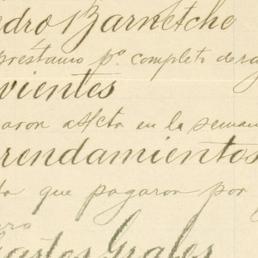 dro Barnetche
prestamo pº completo de
vientes
aron a cta en la seman
rendamientos
que pagaron por
Gastos Grales